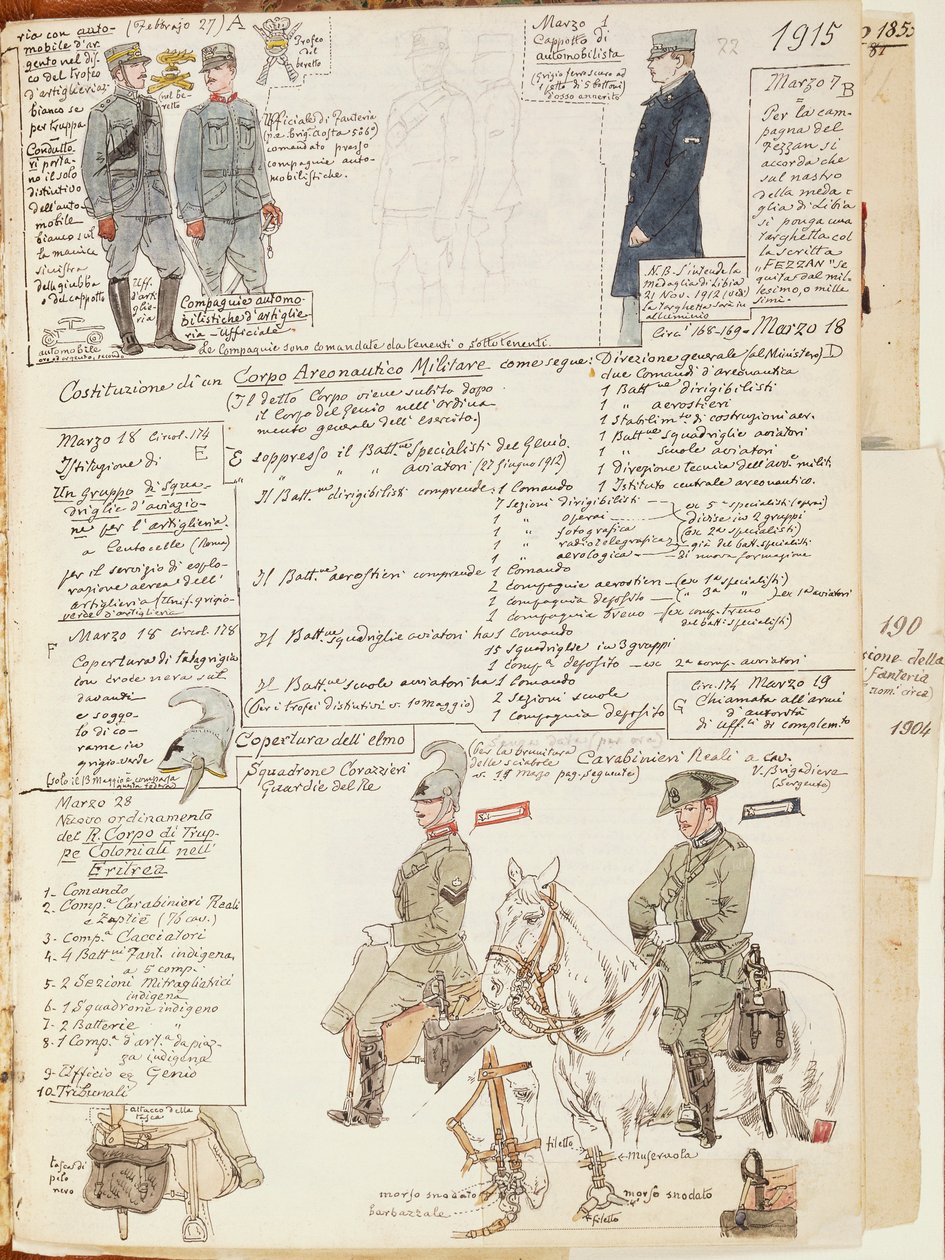 ria con auto-
mobile d'ar-
gento nel dis-
co del trofeo
d'artiglieria:
bianco se
per truppa
Condutto-
ri porta-
no il solo
distintivo
dell'auto
mobile
bianco sul
la manica
sinistra
della giubba
o del cappotto
automobile
oro od argento, secondo
(Febbrajo 27) A
sul be-
retto
Trofeo
del
beretto
Ufficiale di Fanteria
(p.e. brig. Aosta 5° 6°)
comandato presso
compagnie auto-
mobilistiche.
Uff.
d'arti-
glie-
ria
Compagnie automo-
bilistiche d'artiglie-
ria - Ufficiale
Le Compagnie sono comandate da tenenti o sottotenenti.
Marzo 1
Cappotto di
automobilista
(grigio ferro scuro ad
1 petto di 5 bottoni
d'osso annerito
22
1915
Marzo 7 B
Per la cam-
pagna del
Fezzan si
accorda che
sul nastro
della meda-
glia di Libia
si ponga una
targhetta col
la scritta
"FEZZAN" se
guita dal mil-
lesimo, o mille
simi.
N.B. S'intende la
medaglia di Libia
21 Nov. 1912 (vedi)
la targhetta sarà in
alluminio
Circ' 168-169 - Marzo 18
Costituzione di un Corpo Areonautico Militare come segue: Direzione generale (al Ministero) D
(Il detto Corpo viene subito dopo
il Corpo del Genio nell'ordina
mento generale dell'esercito.)
due Comandi d'areonautica
1 Batt.ne dirigibilisti
1 " aerostieri
1 Stabilim.to di costruzioni aer.
1 Batt.ne squadriglie aviatori
1 " scuole aviatori
1 Direzione tecnica dell'avi.e milit.
1 Istituto centrale areonautico.
È soppresso il Batt.ne Specialisti del Genio.
" " " " aviatori (27 Giugno 1912)
Il Batt.ne dirigibilisti comprende: 1 Comando
7 Sezioni dirigibilisti
1 " operai
1 " fotografica
1 " radiotelegrafica
1 " aerologica
ex 5ª specialisti (operai)
divise in 2 gruppi
(ex 2ª specialisti)
già del batt. specialisti
di nuova formazione
Il Batt.ne aerostieri comprende 1 Comando
2 compagnie aerostieri - (ex 1ª specialisti)
1 compagnia deposito - ( " 3ª " ) ex 1ª aviatori
1 compagnia treno - (ex comp. treno
del batt. specialisti)
Il Batt.ne squadriglie aviatori ha 1 Comando
15 squadriglie in 3 gruppi
1 comp.ª deposito - ex 2ª comp. aviatori
Il Batt.ne scuole aviatori ha 1 Comando
(per i trofei distintivi v. 10 maggio)
2 sezioni scuole
1 compagnia deposito
Circ. 174 Marzo 19
G Chiamata all'armi
d'autorità
di uff.li di complem.to
Marzo 18 Circol. 174
E
Istituzione di
Un gruppo di squa-
driglie d'aviazio-
ne per l'artiglieria.
a Centocelle (Roma)
per il servizio di esplo-
razione aerea dell'
artiglieria (Unif. grigio-
verde d'artiglieria
F
Marzo 18 circol. 178
Copertura di tela grigia
con croce nera sul
davanti
e soggo-
lo di co-
rame in
grigio-verde
Copertura dell'elmo
Squadrone Corazzieri
Guardie del Re
(per la brunitura
delle sciabole
v. 11 marzo pag. seguente)
Carabinieri Reali a cav.
V. Brigadiere
(Sergente)
Marzo 28
Nuovo ordinamento
del R. Corpo di Trup-
pe Coloniali nell'
Eritrea
1- Comando
2- Comp.ª Carabinieri Reali
e Zaptié (76 cav.)
3- Comp.ª Cacciatori
4- 4 Batt.ni Fant. indigena,
a 5 comp.
5- 2 Sezioni Mitragliatrici
indigena
6- 1 Squadrone indigeno
7- 2 Batterie "
8- 1 Comp.ª d'art.ª da piaz-
za indigena
9- Ufficio ec Genio
10- Tribunali
attacco della
tasca
tasca di
pelo
nero
filetto
museruola
morso snodato
barbazzale
morso snodato
filetto
1855
81
190
zione della
Fanteria
nom. circa)
1904